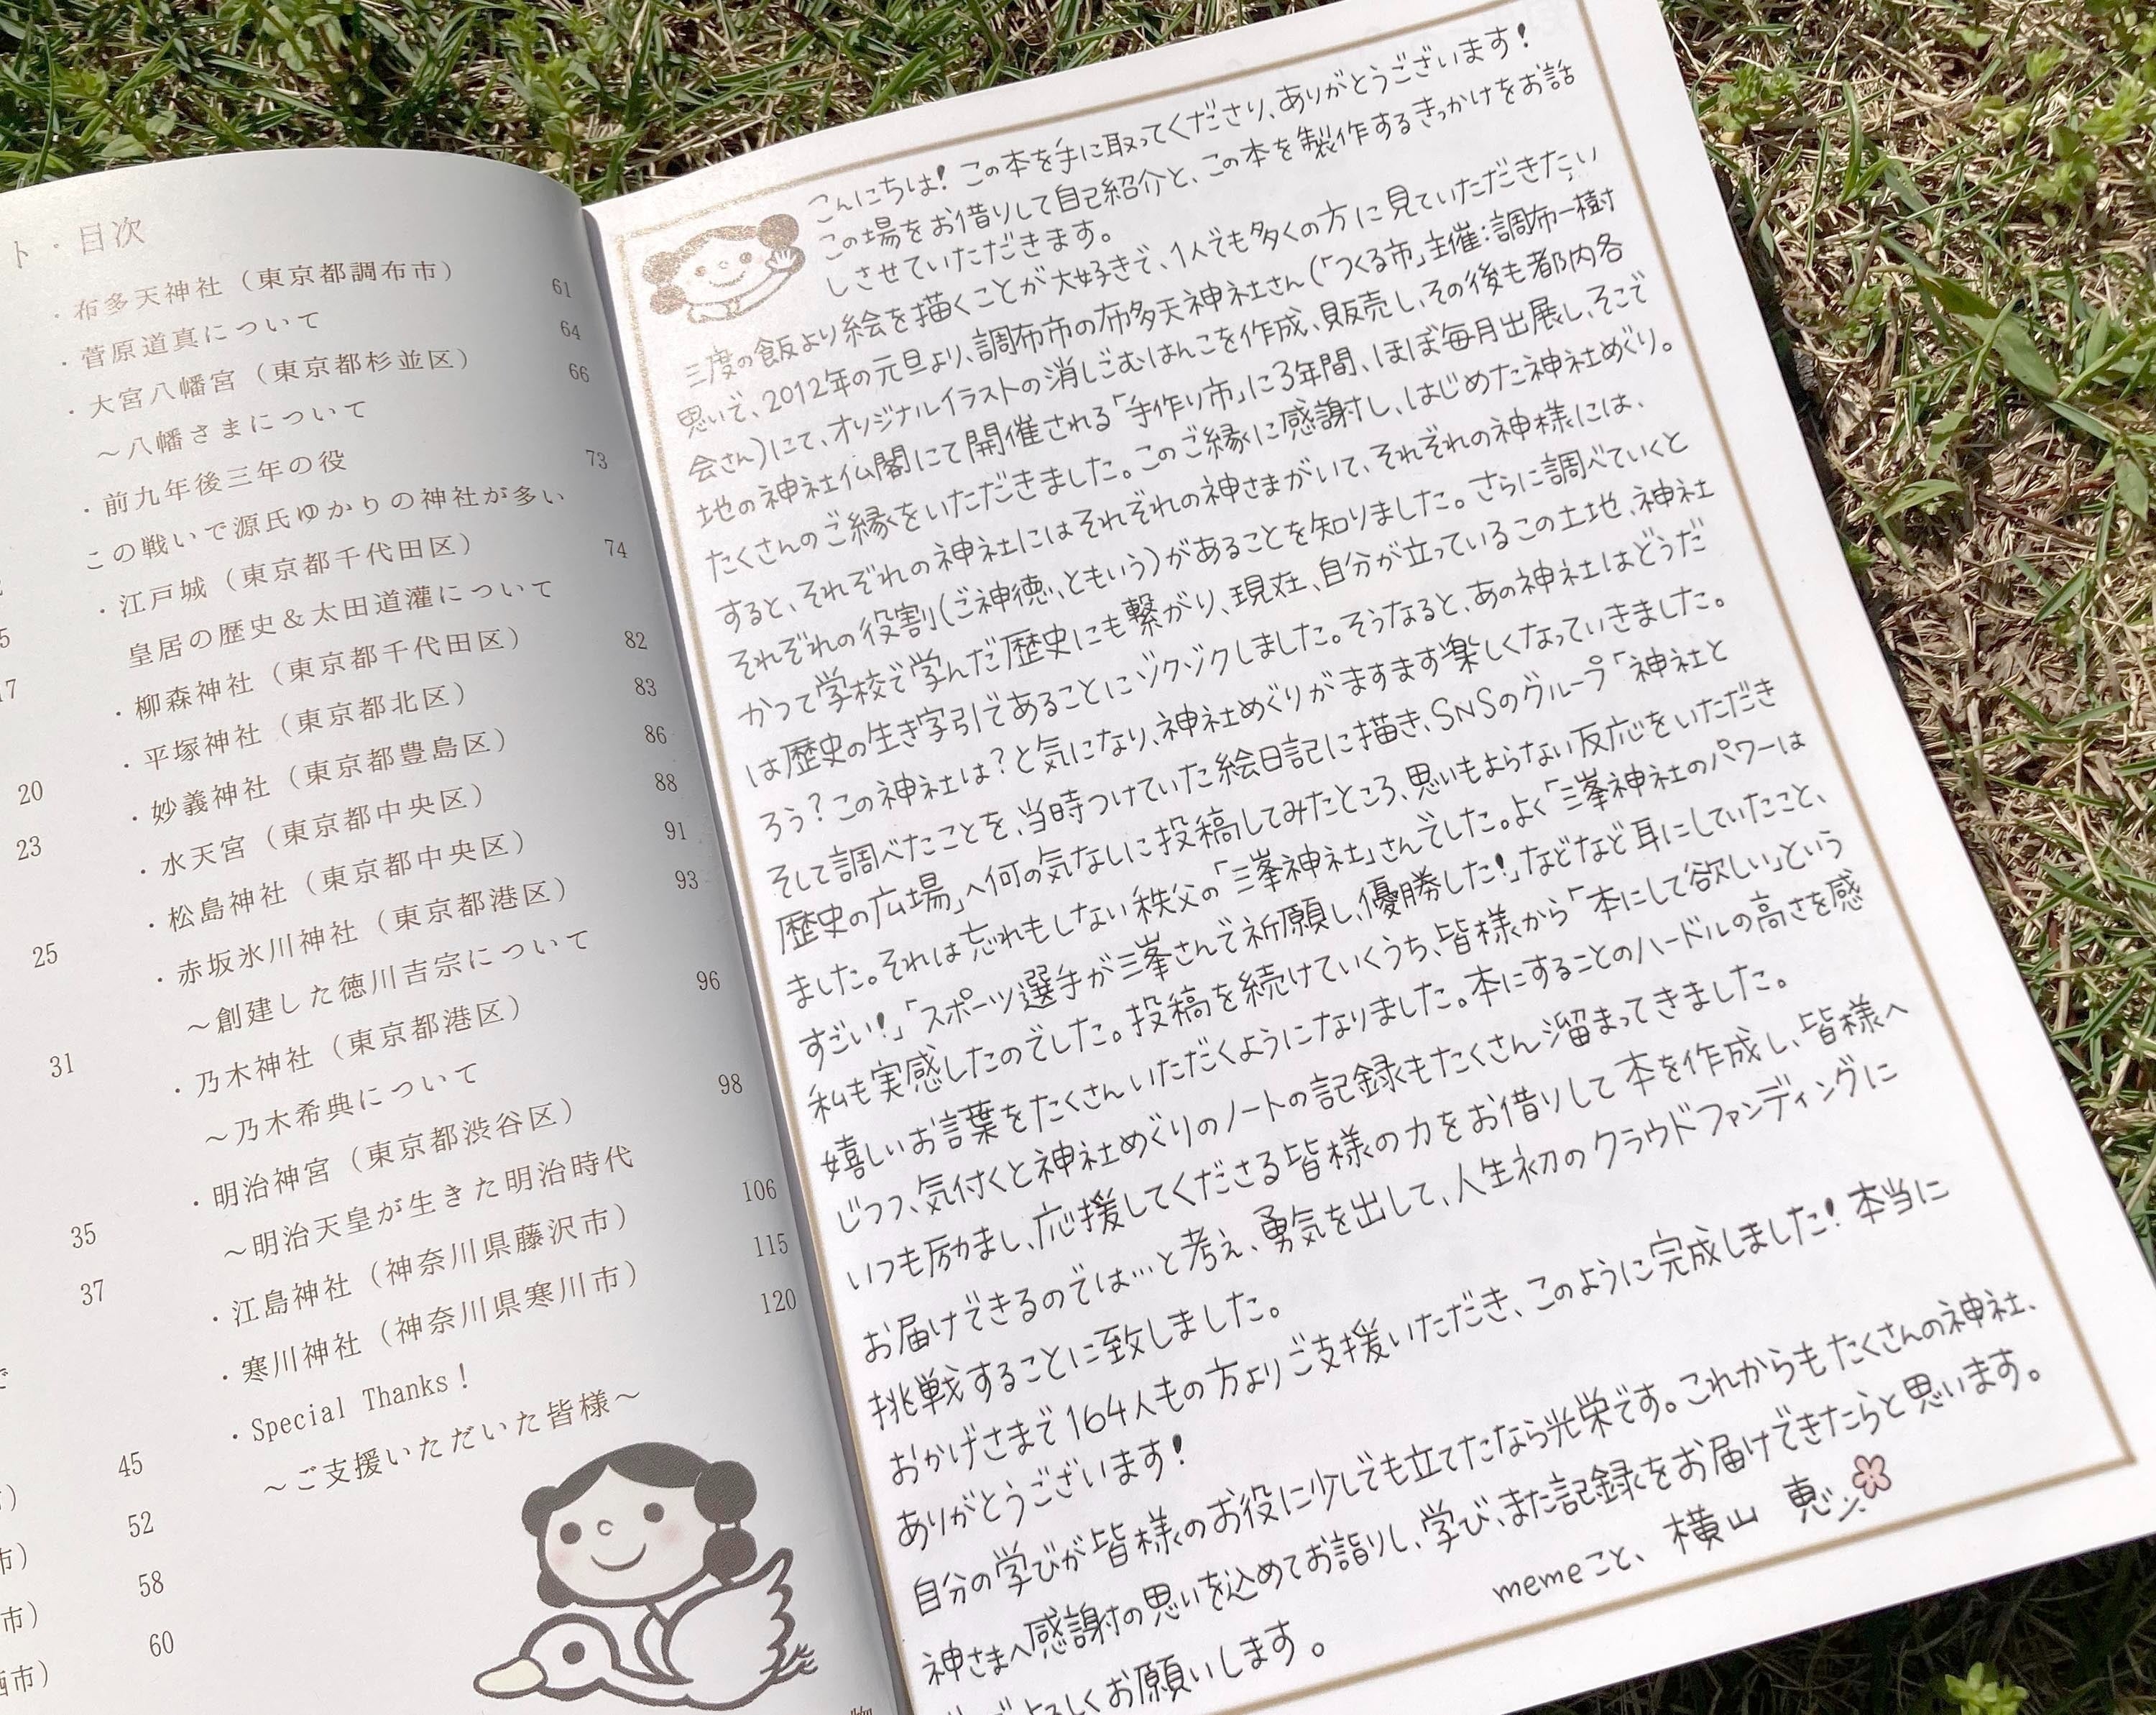 ト・目次
・布多天神社（東京都調布市） 61
・菅原道真について 64
・大宮八幡宮（東京都杉並区） 66
～八幡さまについて
・前九年後三年の役 73
この戦いで源氏ゆかりの神社が多い
・江戸城（東京都千代田区） 74
皇居の歴史＆太田道灌について
・柳森神社（東京都千代田区） 82
・平塚神社（東京都北区） 83
・妙義神社（東京都豊島区） 86
・水天宮（東京都中央区） 88
・松島神社（東京都中央区） 91
・赤坂氷川神社（東京都港区） 93
～創建した徳川吉宗について
・乃木神社（東京都港区） 96
～乃木希典について
・明治神宮（東京都渋谷区） 98
～明治天皇が生きた明治時代
・江島神社（神奈川県藤沢市） 106
・寒川神社（神奈川県寒川市） 115
・Special Thanks！ 120
～ご支援いただいた皆様～
17
20
23
25
31
35
37
45
52
市） 58
市） 60
市）
こんにちは！この本を手に取ってくださり、ありがとうございます！
この場をお借りして自己紹介と、この本を製作するきっかけをお話
しさせていただきます。
三度の飯より絵を描くことが大好きで、1人でも多くの方に見ていただきたい
思いで、2012年の元旦より、調布市の布多天神社さん（「つくる市」主催：調布一樹
会さん）にて、オリジナルイラストの消しごむはんこを作成、販売し、その後も都内各
地の神社仏閣にて開催される「手作り市」に3年間、ほぼ毎月出展し、そこで
たくさんのご縁をいただきました。このご縁に感謝し、はじめた神社めぐり。
すると、それぞれの神社にはそれぞれの神さまがいて、それぞれの神様には、
それぞれの役割（ご神徳、ともいう）があることを知りました。さらに調べていくと
かつて学校で学んだ歴史にも繋がり、現在、自分が立っているこの土地、神社
は歴史の生き字引であることにゾクゾクしました。そうなると、あの神社はどうだ
ろう？この神社は？と気になり、神社めぐりがますます楽しくなっていきました。
そして調べたことを、当時つけていた絵日記に描き、SNSのグループ「神社と
歴史の広場」へ何の気なしに投稿してみたところ、思いもよらない反応をいただき
ました。それは忘れもしない秩父の「三峯神社」さんでした。よく「三峯神社のパワーは
すごい！」「スポーツ選手が三峯さんで祈願し、優勝した！」などなど耳にしていたこと、
私も実感したのでした。投稿を続けていくうち、皆様から「本にして欲しい」という
嬉しいお言葉をたくさんいただくようになりました。本にすることのハードルの高さを感
じつつ、気付くと神社めぐりのノートの記録もたくさん溜まってきました。
いつも励まし、応援してくださる皆様の力をお借りして本を作成し、皆様へ
お届けできるのでは…と考え、勇気を出して、人生初のクラウドファンディングに
挑戦することに致しました。
おかげさまで164人もの方よりご支援いただき、このように完成しました！本当に
ありがとうございます！
自分の学びが皆様のお役に少しでも立てたなら光栄です。これからもたくさんの神社、
神さまへ感謝の思いを込めてお詣りし、学び、また記録をお届けできたらと思います。
よろしくお願いします。
memeこと、横山 恵